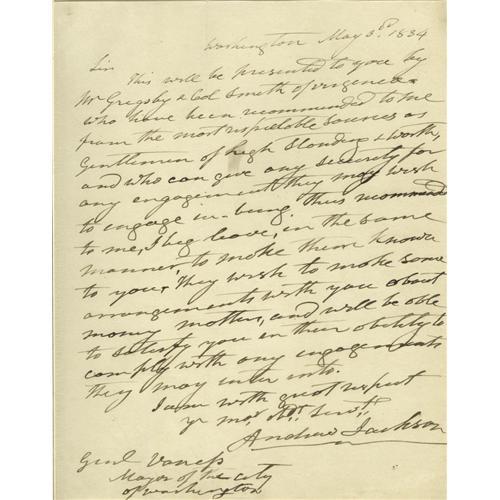 Washington May 3.d 1834
Sir This will be presented to you by
Mr Grigsby & Col Smith of virginea
who have been recommended to me
from the most respectable sources as
Gentlemen of high standing & worth,
and who can give any security for
any engagement they may wish
to engage in - being thus recommended
to me, I beg leave, in the same
manner, to make them known
to you. They wish to make some
arrangements with you about
money matters, and will be able
to satisfy you in their ability to
comply with any engagements
they may enter into.
I am with great respect
yr mo. obdt. servt.
Andrew Jackson
Genl Vaness
Mayor of the city
of washington